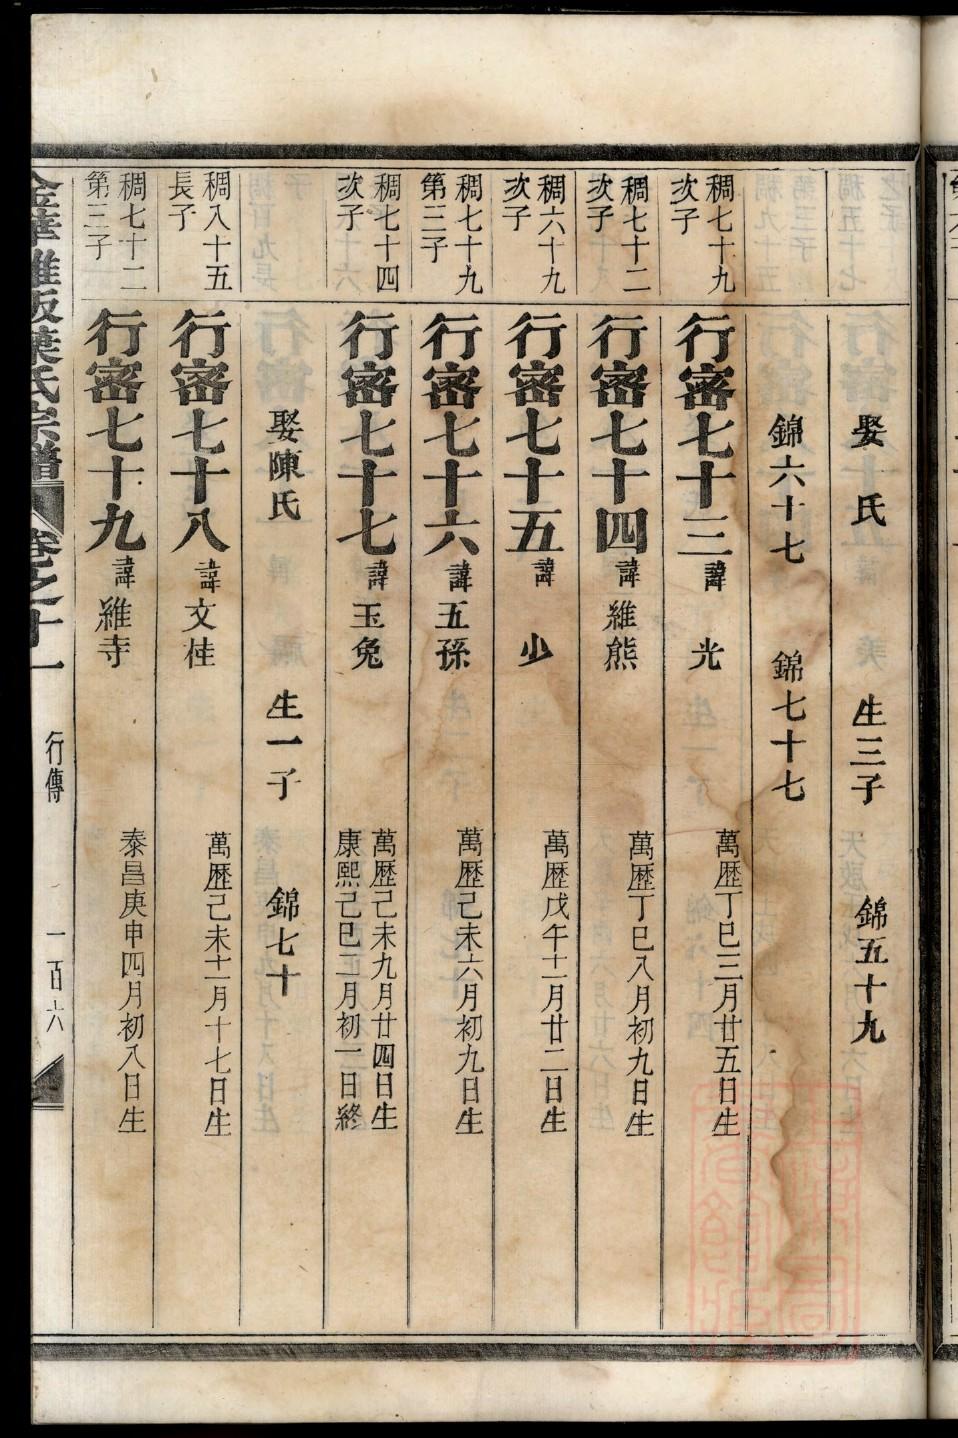 娶 氏 生三子 錦五十九
錦六十七 錦七十七
稠七十九
次子
行密七十三 諱 光 萬歷丁巳三月廿五日生
稠七十二
次子
行密七十四 諱維熊 萬歷丁巳八月初九日生
稠六十九
次子
行密七十五 諱 少 萬歷戊午十一月廿二日生
稠七十九
第三子
行密七十六 諱五孫 萬歷己未六月初九日生
稠七十四
次子
行密七十七 諱玉兔 萬歷己未九月廿四日生
康熙己巳二月初一日終
娶陳氏 生一子 錦七十
稠八十五
長子
行密七十八 諱文桂 萬歷己未十一月十七日生
稠七十二
第三子
行密七十九 諱維寺 泰昌庚申四月初八日生
金華雅畈葉氏宗譜 卷之十一 行傳 一百六